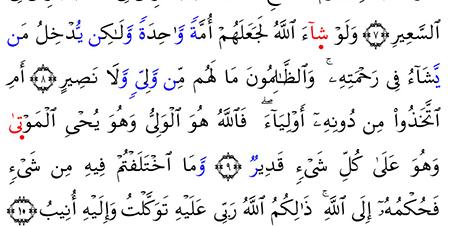 ٱلسَّعِيرِ ﴿٧﴾ وَلَوْ شَآءَ ٱللَّهُ لَجَعَلَهُمْ أُمَّةً وَٰحِدَةً وَلَٰكِن يُدْخِلُ مَن
يَشَآءُ فِى رَحْمَتِهِۦ ۚ وَٱلظَّٰلِمُونَ مَا لَهُم مِّن وَلِىٍّ وَلَا نَصِيرٍ ﴿٨﴾ أَمِ
ٱتَّخَذُوا۟ مِن دُونِهِۦٓ أَوْلِيَآءَ ۖ فَٱللَّهُ هُوَ ٱلْوَلِىُّ وَهُوَ يُحْىِ ٱلْمَوْتَىٰ
وَهُوَ عَلَىٰ كُلِّ شَىْءٍ قَدِيرٌ ﴿٩﴾ وَمَا ٱخْتَلَفْتُمْ فِيهِ مِن شَىْءٍ
فَحُكْمُهُۥٓ إِلَى ٱللَّهِ ۚ ذَٰلِكُمُ ٱللَّهُ رَبِّى عَلَيْهِ تَوَكَّلْتُ وَإِلَيْهِ أُنِيبُ ﴿١٠﴾